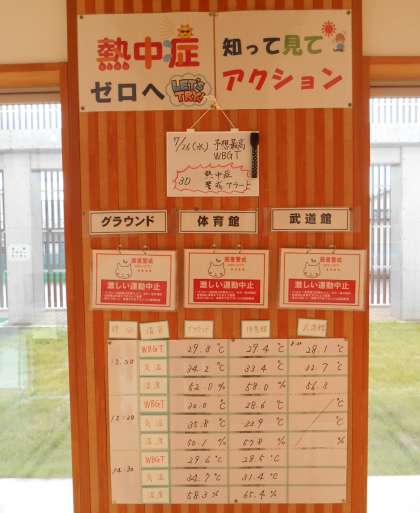 熱中症
ゼロへ
LET'S TRY!
知って見て
アクション
7/26(水) 予想最高
WBGT
30
熱中症
警戒アラート
グラウンド 体育館 武道館
厳重警戒 厳重警戒 厳重警戒
激しい運動中止 激しい運動中止 激しい運動中止
時刻 項目 グラウンド 体育館 武道館
WBGT 29.8 ℃ 29.4 ℃ 28.1 ℃
気温 34.2 ℃ 33.4 ℃ 32.7 ℃
湿度 52.0 % 58.0 % 56.8
WBGT 30.0 ℃ 28.6 ℃ ℃
気温 35.8 ℃ ℃ ℃
湿度 50.1 % 57.8 % %
14:30 WBGT 29.6 ℃ 28.5 ℃
気温 34.7 ℃ 31.4 ℃
湿度 58.3 % 65.4 %